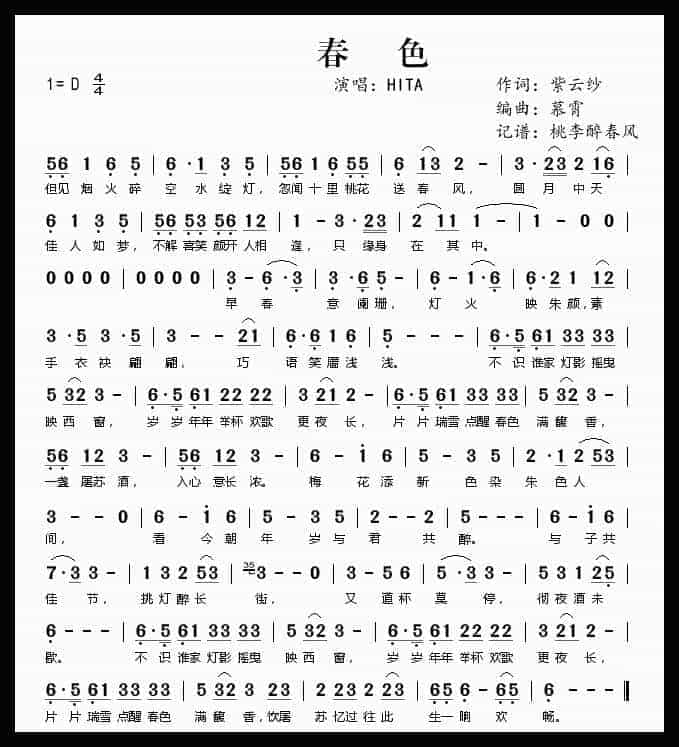 春 色
1= D 4/4 演唱：HITA 作词：紫云纱
编曲：慕霄
记谱：桃李醉春风
56 1 6 5 | 6 · 1 3 5 | 56 1 6 55 | 6 13 2 - | 3 · 23 2 16 |
但见 烟 火 碎 空 水 绽 灯， 忽闻 十 里 桃花 送 春 风， 圆 月 中 天
6 1 3 5 | 56 53 56 12 | 1 - 3 · 23 | 2 11 1 - | 1 - 0 0 |
佳 人 如 梦， 不解 喜笑 颜开 人相 逢， 只 缘身 在 其 中。
0 0 0 0 | 0 0 0 0 | 3 - 6 · 3 | 3 · 6 5 - | 6 - 1 · 6 | 6 · 2 1 12 |
早 春 意 阑 珊， 灯 火 映 朱 颜， 素
3 · 5 3 · 5 | 3 - - 21 | 6 · 6 1 6 5 | 5 - - - | 6 · 5 61 33 33 |
手 衣 袂 翩 翩， 巧 语 笑 靥 浅 浅。 不 识 谁家 灯影 摇曳
5 32 3 - | 6 · 5 61 22 22 | 3 21 2 - | 6 · 5 61 33 33 | 5 32 3 - |
映 西 窗， 岁 岁 年年 举杯 欢歌 更 夜 长， 片 片 瑞雪 点醒 春色 满 馥 香，
56 12 3 - | 56 12 3 - | 6 - 1 6 | 5 - 3 5 | 2 · 1 2 53 |
一盏 屠苏 酒， 入心 意长 浓。 梅 花 添 新 色 染 朱 色 人
3 - - 0 | 6 - 1 6 | 5 - 3 5 | 2 - - 2 | 5 - - - | 5 - 1 6 |
间， 看 今 朝 年 岁 与 君 共 醉。 与 子 共
7 · 3 3 - | 1 3 2 53 | 3 - - 0 | 3 - 5 6 | 5 · 3 5 - | 5 3 1 25 |
佳 节， 挑 灯 醉 长 街， 又 道 杯 莫 停， 彻 夜 酒 未
6 - - - | 6 · 5 61 33 33 | 5 32 3 - | 6 · 5 61 22 22 | 3 21 2 - |
歇。 不 识 谁家 灯影 摇曳 映 西 窗， 岁 岁 年年 举杯 欢歌 更 夜 长，
6 · 5 61 33 33 | 5 32 3 23 | 2 1 2 23 | 65 6 - 65 | 6 - - - ‖
片 片 瑞雪 点醒 春色 满 馥 香， 饮屠 苏 忆过 往此 生 一晌 欢 畅。